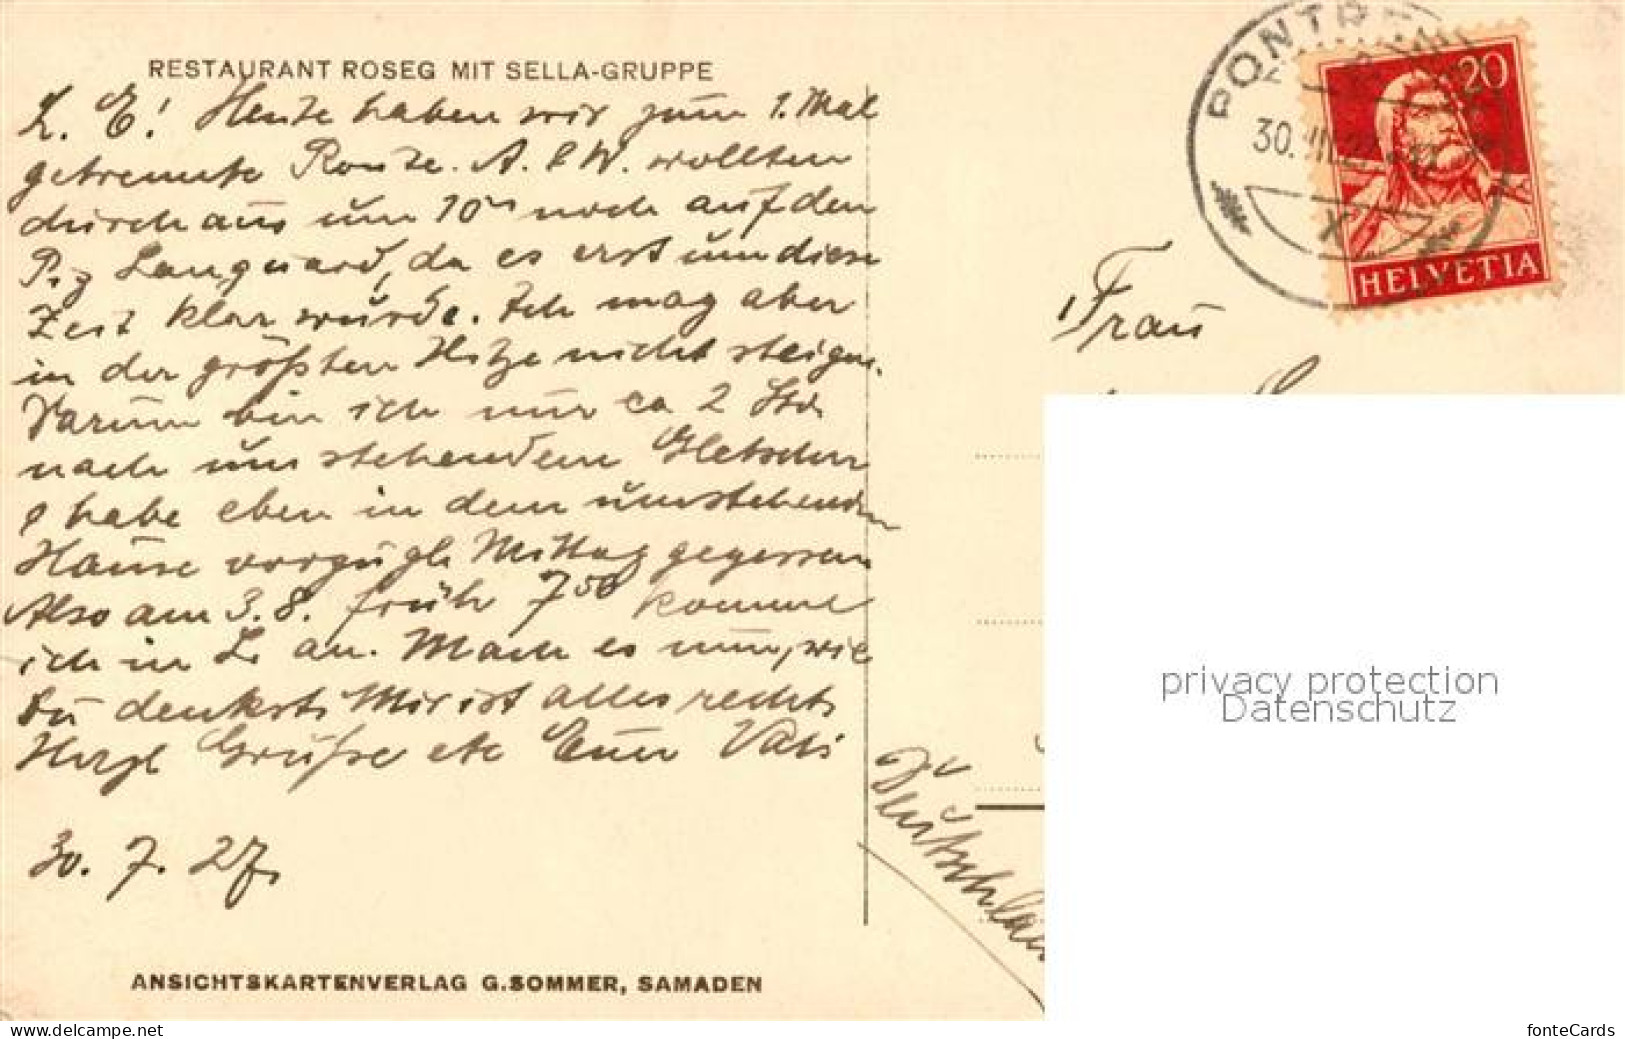 RESTAURANT ROSEG MIT SELLA-GRUPPE
L. E! Heute haben wir zum 1. Mal
getrennte Route. A. & W. wollten
durchaus um 10 noch auf den
Piz Languard, da es erst um diese
Zeit klar wurde. Ich mag aber
in der größten Hitze nicht steigen.
Darum bin ich nur ca 2 Std.
nach umstehendem Gletscher
& habe eben in dem umstehenden
Hause vorzügl. Mittag gegessen
Also am 3.8. früh 7⁵⁰ komme
ich in L. an. Mach es nun, wie
Du denkst. Mir ist alles recht.
Herzl Grüße etc Euer Vati
30. 7. 27.
ANSICHTSKARTENVERLAG G. SOMMER, SAMADEN
PONTRE
30. VII. 27
X
20
HELVETIA
Frau
Deutschlan
privacy protection
Datenschutz
www.delcampe.net
fonteCards